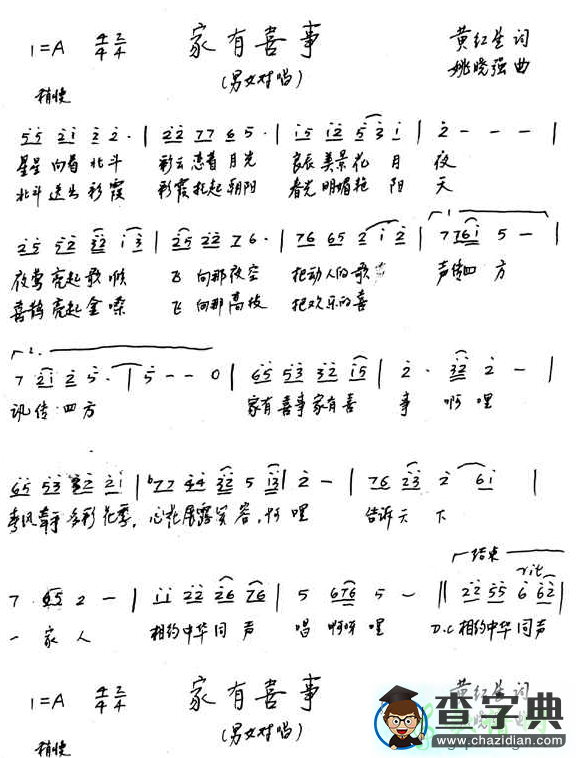 家有喜事
1=A 4/4 2/4
黄红生词
(男女对唱)
姚晓强曲
稍快
5 5 2 1 2 2· | 2 2 7 7 6 5· | 1 5 1 2 5 3 1 | 2 - - - |
星星 向着 北斗 彩云 恋着 月光 良辰 美景 花 月 夜
北斗 送出 彩霞 彩霞 托起 朝阳 春光 明媚 艳 阳 天
2 5 5 2 3 2 1 3 | 2 5 2 2 7 6· | 7 6 6 5 2 1 2 | 7 7 6 1 5 - |
夜莺 亮起 歌喉 飞 向那 夜空 把动人的歌 声传四 方
喜鹊 亮起 金嗓 飞 向那 高枝 把欢乐的喜
7 2 1 2 5· | 5 - - 0 | 6 5 5 3 3 2 1 5 | 2· 3 2 2 - |
讯传 四方 家有喜事家有喜 事 啊哩
6 5 5 3 2 2 1 | 7 7 4 4 3 2 5 1 3 | 2 - | 7 6 2 3 2 6 1 |
多彩 花季, 心花展露笑容, 啊 哩 告诉天 下
结束
rit
7· 6 5 2 - | 1 1 2 2 2 6 7 6 | 5 6 7 6 5 - || 2 2 5 5 6 6 2 |
一 家 人 相约中华同 声 唱 啊呀哩 D.C 相约中华同声
家有喜事
1=A 4/4 2/4
黄红生词
(男女对唱)
稍快
查字典
www.chazidian.com